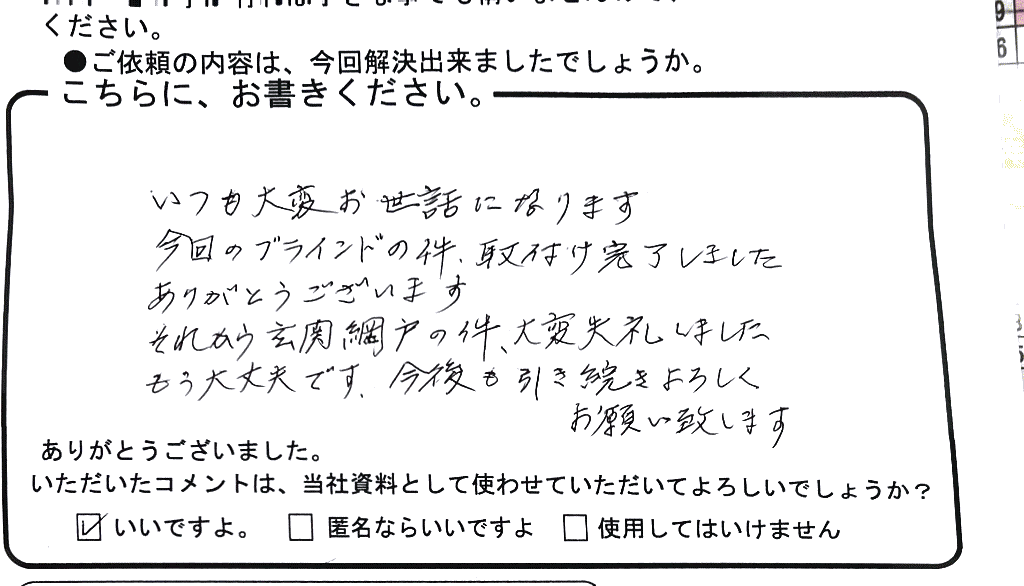 ください。
●ご依頼の内容は、今回解決出来ましたでしょうか。
こちらに、お書きください。
いつも大変お世話になります
今回のブラインドの件、取付け完了しました
ありがとうございます
それから玄関網戸の件、大変失礼しました
もう大丈夫です、今後も引き続きよろしく
お願い致します
ありがとうございました。
いただいたコメントは、当社資料として使わせていただいてよろしいでしょうか？
☑いいですよ。 □匿名ならいいですよ □使用してはいけません
9
6